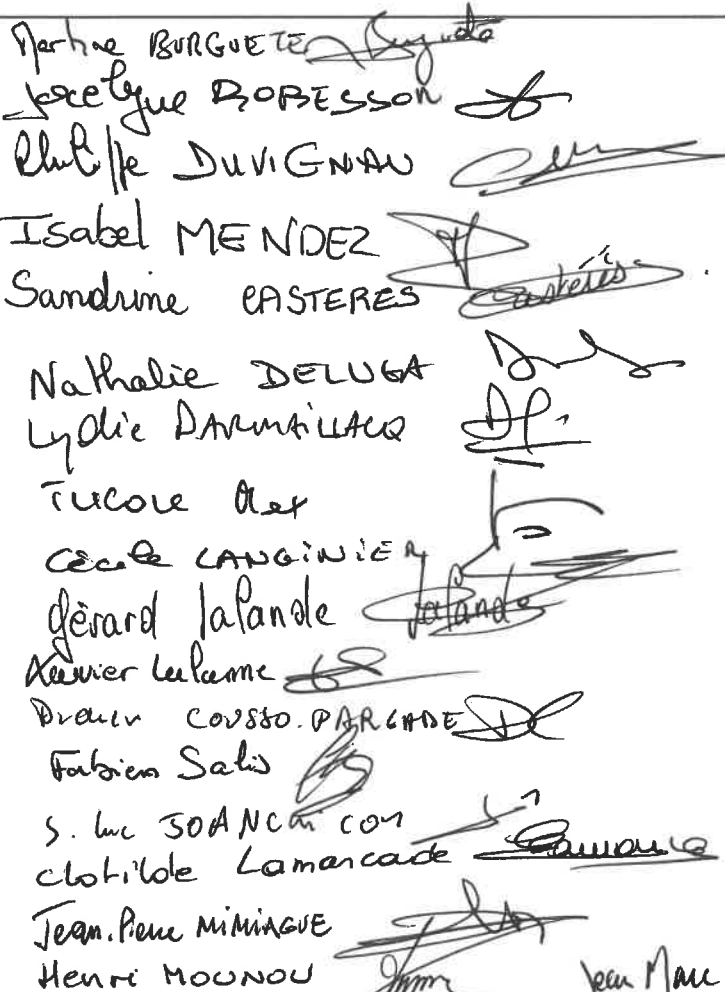 Martine BURGUETE Burguete
Jocelyne ROBESSON
Philippe DUVIGNAU
Isabel MENDEZ
Sandrine CASTERES Castérès
Nathalie DELUGA
Lydie DARMAILLACQ
Tucou Alex
Cécile LANGINIER
Gérard Lalande Lalande
Xavier Lalanne
COUSSO.PARGADE
Fabien Salis
J. Luc
Clotilde Lamarcade
Jean.Pierre MIMIAGUE
Henri MOUNOU Jean Marc